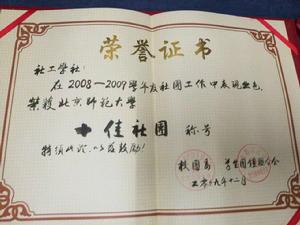 荣誉证书
社工学社：
在2008—2009学年度社团工作中表现出色，
荣获北京师范大学
十佳社团 称号
特颁此证，以兹鼓励！
校团委 学生团体联合会
二〇〇九年十二月